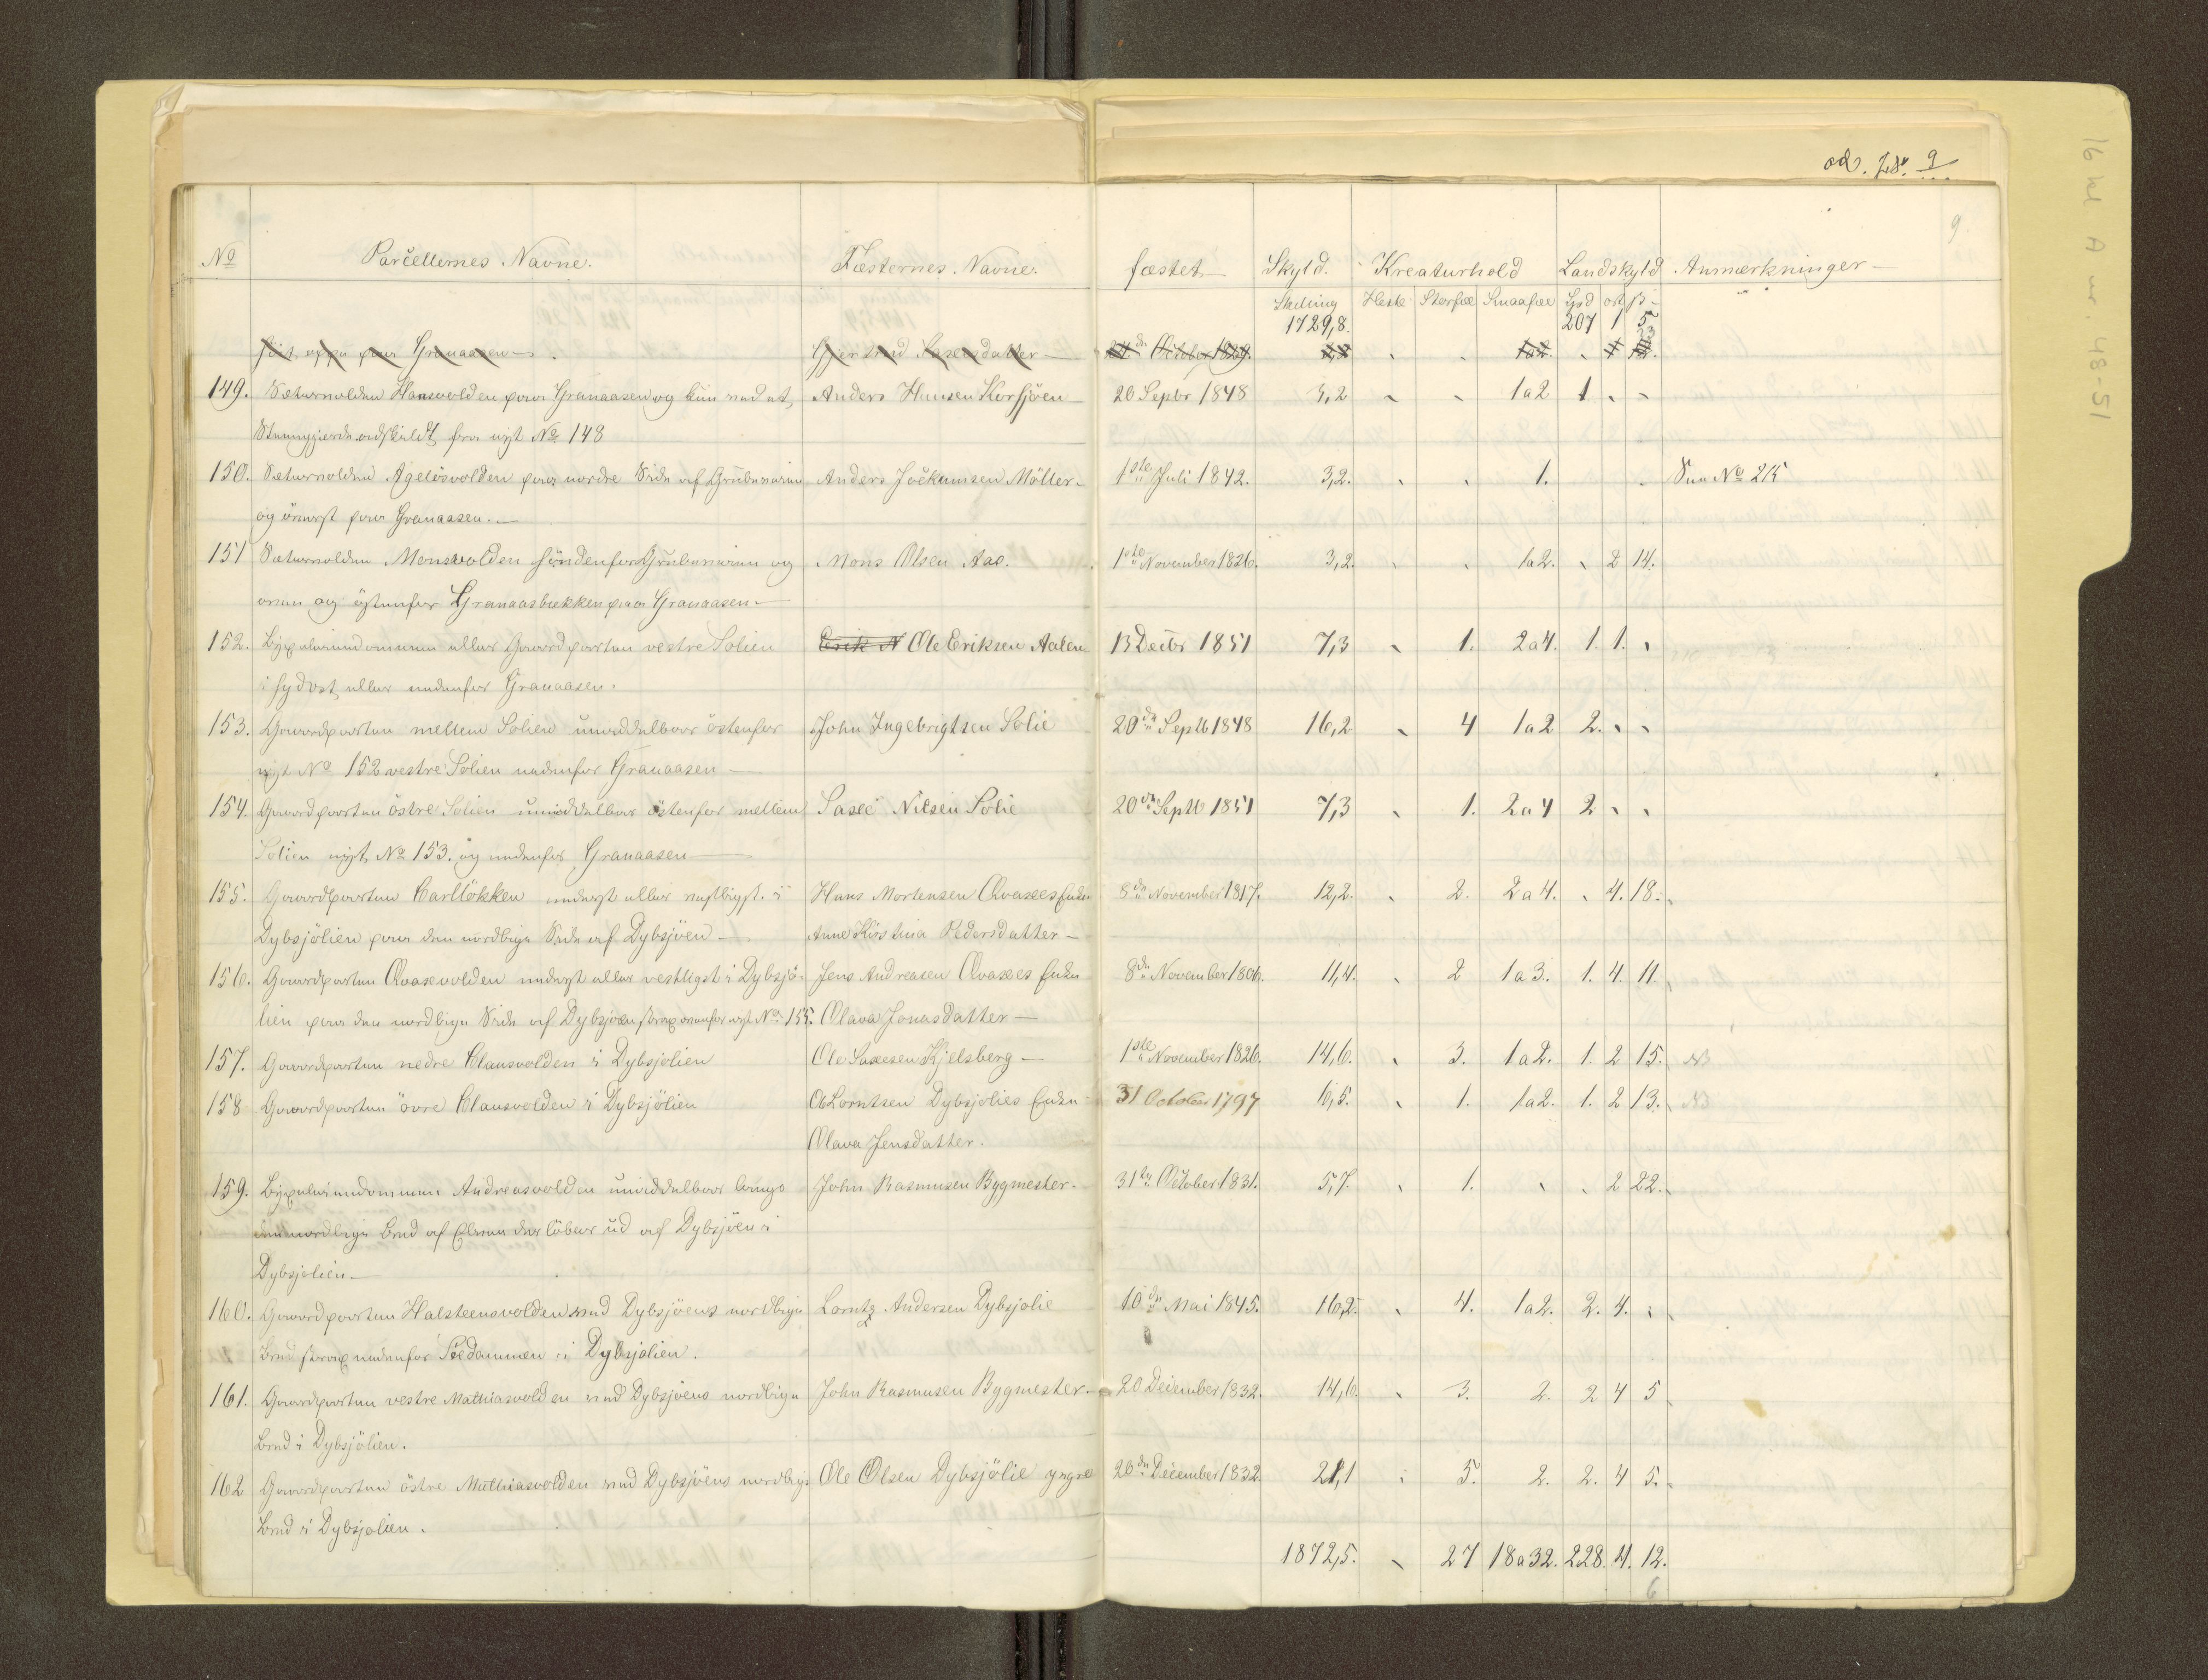 ad. 9
9
16 kl A nr. 48-51
No Parcellernes Navne. Fæsternes Navne. fæstet Skyld. Kreaturhold Landskyld Anmærkninger
Skilling Heste Storfæ Smaafæ Spd ort β
1729,8. 207 1 5
høit oppe paa Granaasen Gjertrud Saxesdatter October 1829 23
149. Sætervolden Hansvolden paa Granaasen og Anders Hansen Korsjöen 20 Septbr 1848 3,2 1 a 2 1
adskildt fra nyt No 148
150. Sætervolden Agelösvolden paa nordre Side af Grubeveien Anders Jockumsen Möller 1ste Juli 1842. 3,2. 1. See No 215
og överst paa Granaasen.
151 Sætervolden Monsvolden söndenfor Grubeveien og Mons Olsen Aas. 1ste November 1826. 3,2. 1a2. 2 14.
oven og östenfor Granaasbækken paa Granaasen.
152. eller Gaardparten vestre Solien Erik N Ole Eriksen Aalen 13 Decbr 1851 7,3 1. 2a4. 1. 1.
i Sydvest eller nedenfor Granaasen.
153. Gaardparten mellem Solien umiddelbar östenfor John Ingebrigtsen Solie 20de Septb 1848 16,2 4 1a2 2.
nyt No 152 vestre Solien nedenfor Granaasen
154. Gaardparten östre Solien umiddelbar östenfor mellem Saxe Nilsen Solie 20de Septb 1851 7,3 1. 2a4 2
Solien nyt No 153. og nedenfor Granaasen
155. Gaardparten Carllökken nederst eller vestligst i Hans Mortensen Avaxes Enke 8de November 1817. 12,2. 2. 2a4. 4. 18.
Dybsjölien paa den nordlige Side af Dybsjöen Anne Kirstina Pedersdatter
156. Gaardparten Avaxvolden nederst eller vestligst i Dybsjö- Jens Andreasen Avaxes Enke 8de November 1806. 11,4. 2 1a3. 1. 4. 11.
lien paa den nordlige Side af Dybsjöen strax ovenfor nyt No 155. Olava Jonasdatter
157. Gaardparten nedre Clausvolden i Dybsjolien Ole Saxesen Kjelsberg 1ste November 1826. 14,6. 3. 1a2. 1. 2 15. NB
158 Gaardparten övre Clausvolden i Dybsjölien Ole Lorntsen Dybsjölies Enke 31 October 1797 6,5. 1. 1a2. 1. 2 13. NB
Olava Jensdatter.
159. Andreasvolden umiddelbar langs John Rasmusen Bygmester 31te October 1831. 5,7. 1. 2 22.
den nordlige Bred af Elven der löber ud af Dybsjöen i
Dybsjolien
160. Gaardparten Halsteensvolden ved Dybsjöens nordlige Lorntz Andersen Dybsjolie 10de Mai 1845. 16,2. 4. 1a2. 2. 4.
Bred strax nedenfor Sædammen i Dybsjölien.
161. Gaardparten vestre Mathiasvolden ved Dybsjöens nordlige John Rasmusen Bygmester 20 December 1832. 14,6. 3. 2. 2 4 5
Bred i Dybsjölien.
162 Gaardparten östre Mathiasvolden ved Dybsjöens nordlige Ole Olsen Dybsjölie yngre 20de December 1832. 21,1 5. 2. 2. 4 5.
Bred i Dybsjolien.
1872,5. 27 18a32. 228. 4. 12.
6